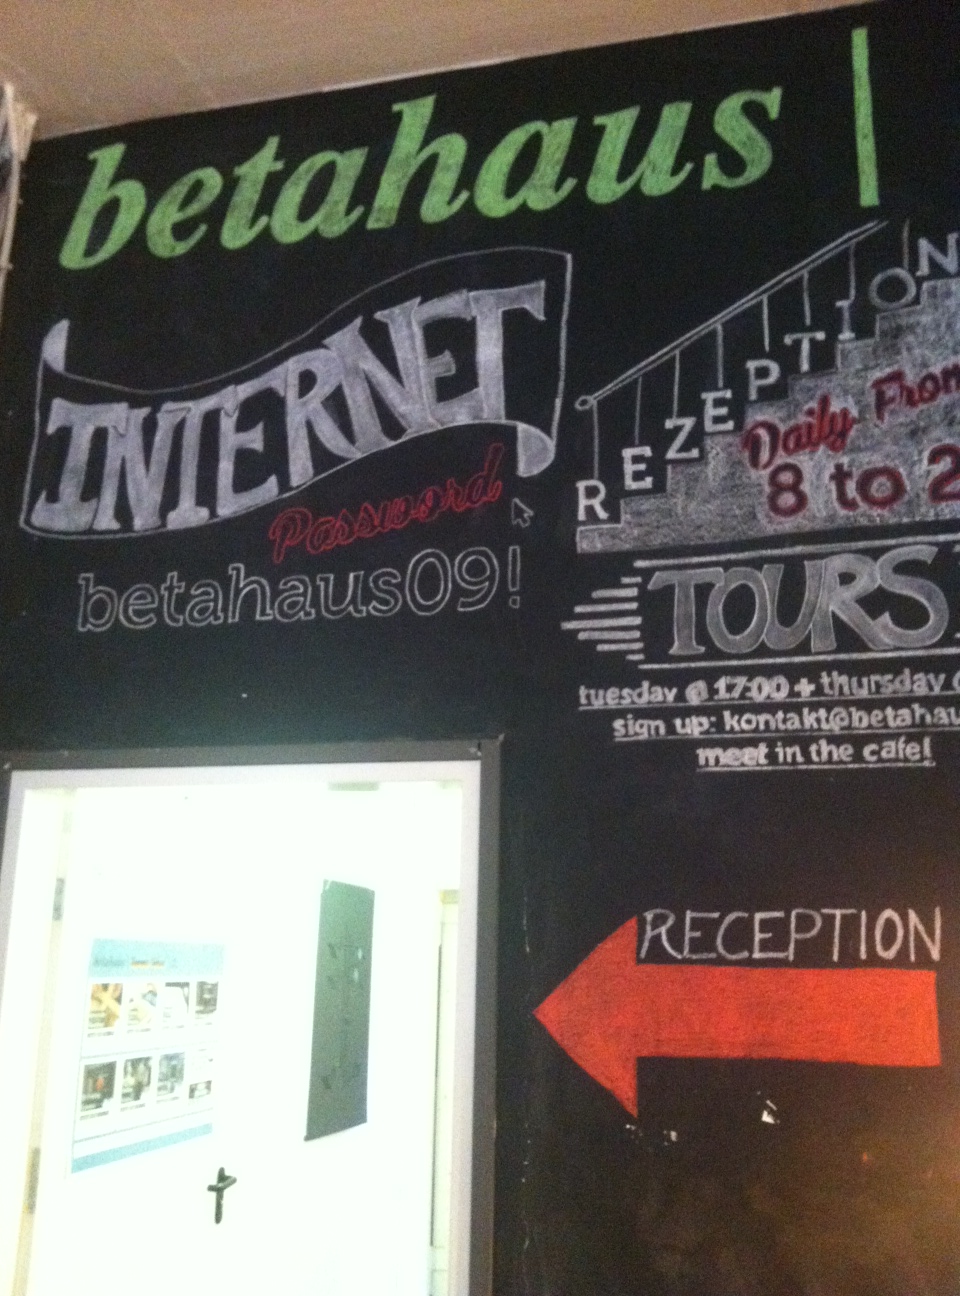 betahaus|
INTERNET
Password
betahaus09!
REZEPTION
Daily From
8 to 2
TOURS
tuesday @ 17:00 + thursday @
sign up: kontakt@betahau
meet in the cafe!
RECEPTION